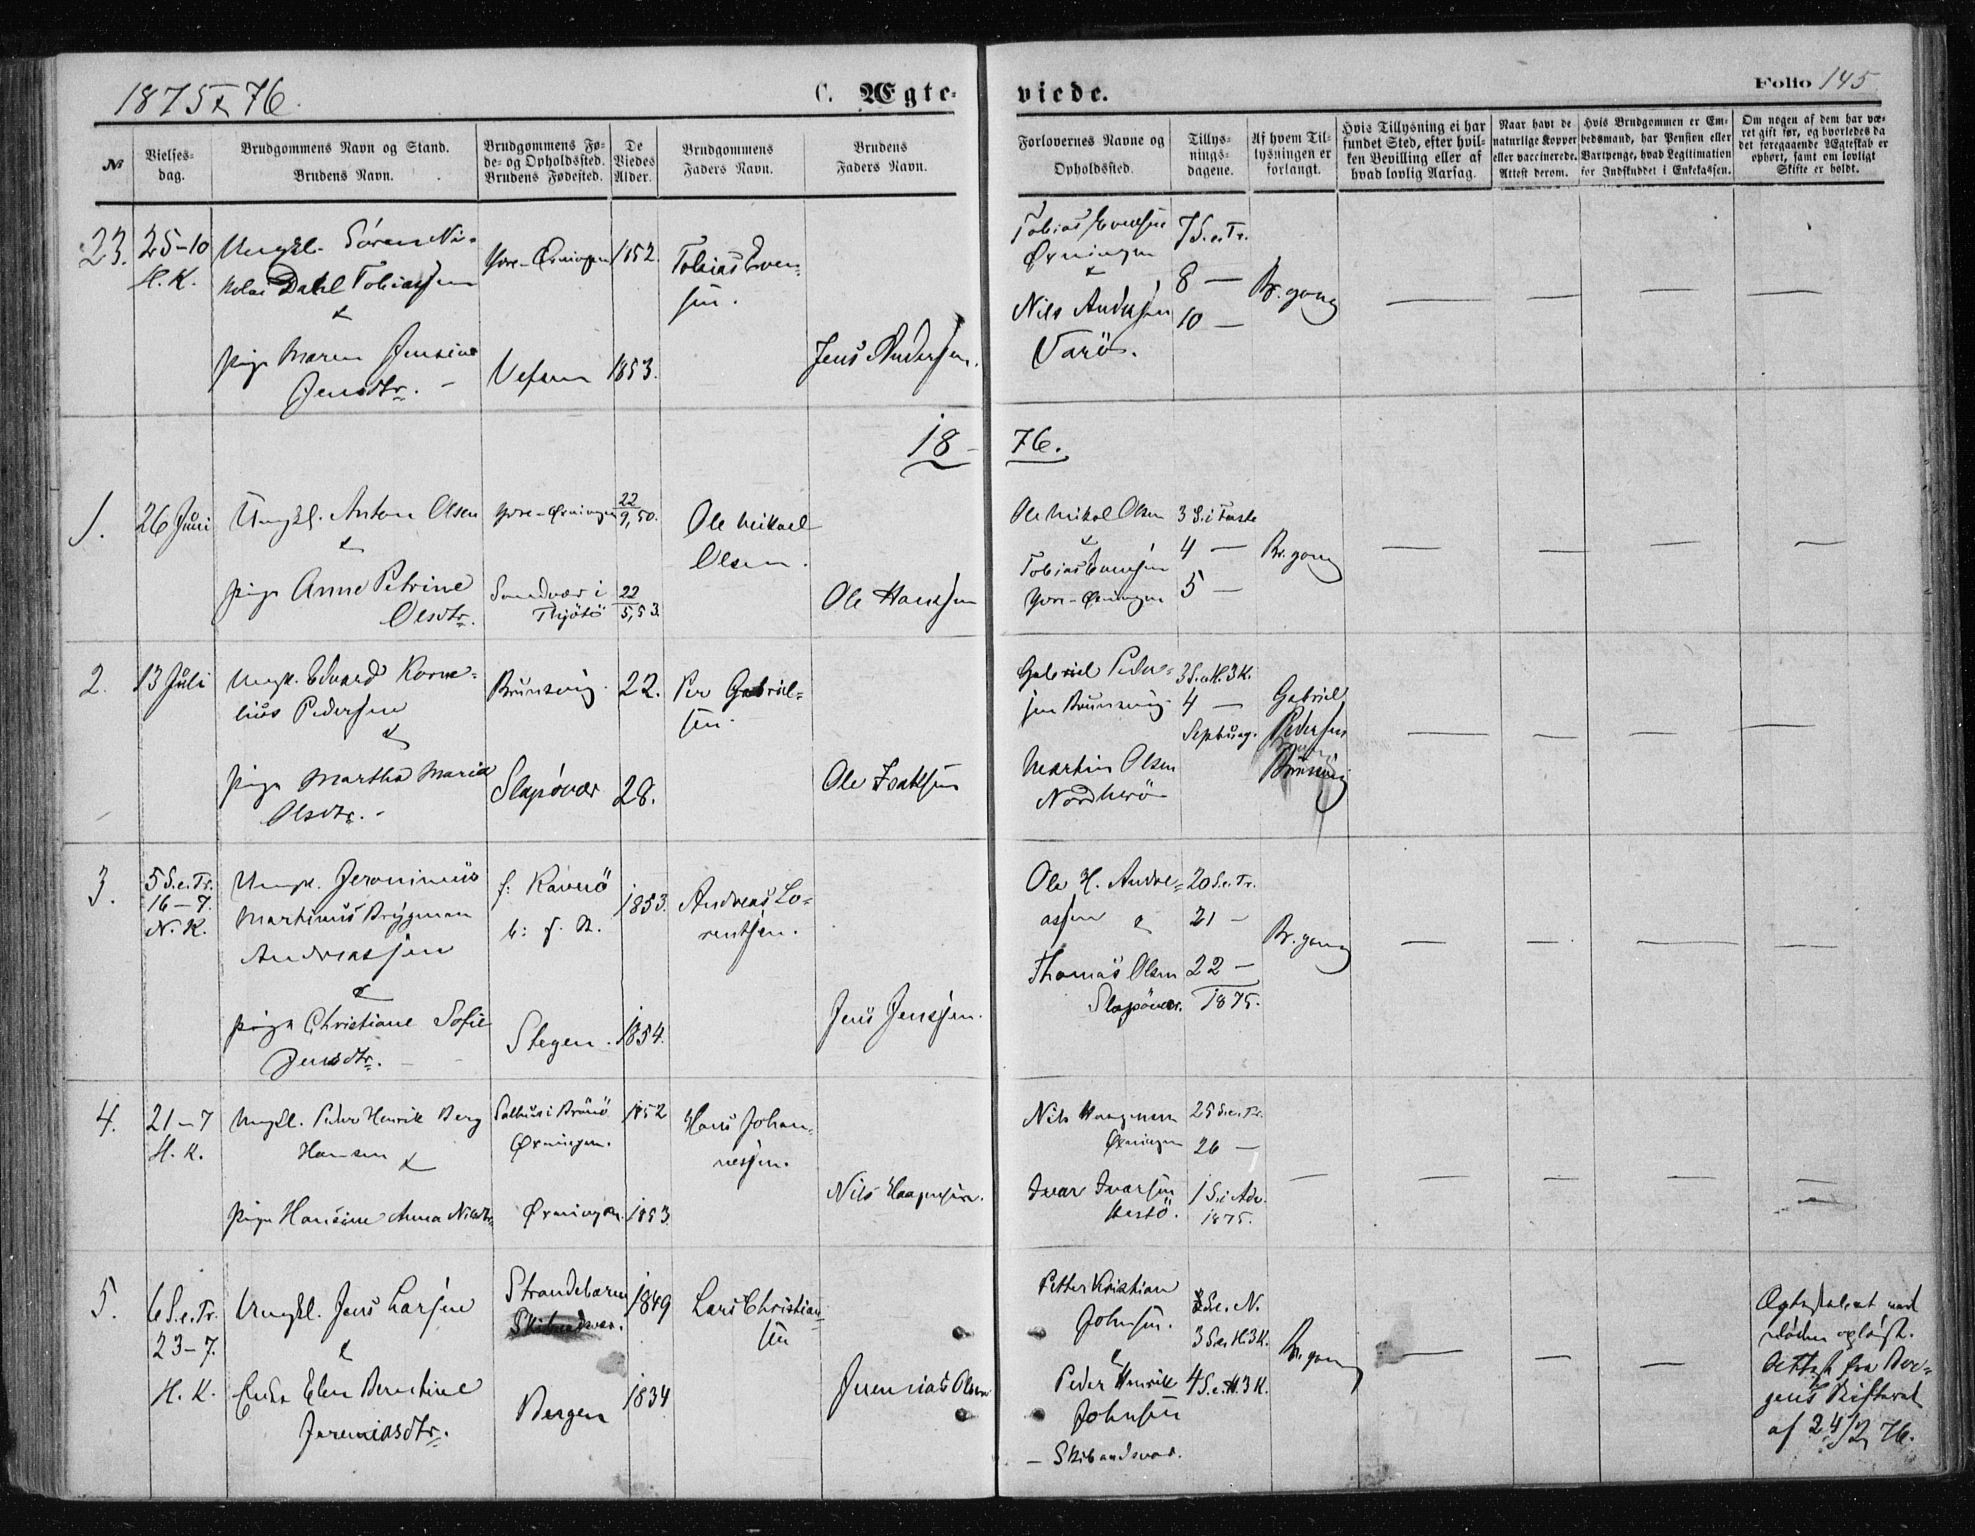 1875 & 76.
C. Ægte-
viede.
Folio 145
№
Vielses-
dag.
Brudgommens Navn og Stand.
Brudens Navn.
Brudgommens Fø-
de- og Opholdssted.
Brudens Fødested.
De
Viedes
Alder.
Brudgommens
Faders Navn.
Brudens
Faders Navn.
Forlovernes Navne og
Opholdssted.
Tillys-
nings-
dagene.
Af hvem Til-
lysningen er
forlangt.
Hvis Tillysning ei har
fundet Sted, efter hvil-
ken Bevilling eller af
hvad lovlig Aarsag.
Naar havt de
naturlige Kopper
eller vaccinerede.
Attest derom.
Hvis Brudgommen er Em-
bedsmand, har Pension eller
Vartpenge, hvad Legitimation
for Indskuddet i Enkekassen.
Om nogen af dem har væ-
ret gift før, og hvorledes da
det foregaaende Ægteskab er
ophørt, samt om lovligt
Skifte er holdt.
23.
25-10
H. K.
Ungkl. Sören Ni-
kolai Dahl Tobiassen
&
pige Maren Jensine
Jensdtr. -
Yvre-Øxningen
Vefsen
1852.
1853.
Tobias Even-
sen.
Jens Andersen.
Tobias Evensen
Øxningen
&
Nils Andersen
Varö.
7 S. e. Tr.
8 —
10 —
Br. gom
18-
76.
1.
26 Juni
Ungkl. Anton Olsen
&
pige Anne Petrine
Olsdtr.
Yvre-Øxningen
Sandvær i
Thjötö
22/9, 50.
22/5, 53.
Ole Mikael
Olsen.
Ole Hanssen
Ole Mikal Olsen
&
Tobias Evensen
Yvre-Øxningen
3 S. i Faste
4 —
5 —
Br. gom
2.
13 Juli
Ungk. Edvard Korne-
lius Pedersen
&
pige Martha Maria
Olsdtr. -
Brunsvig.
Slapövær
22.
28.
Per Gabriel-
sen.
Ole Isaksen
Gabriel Peder-
sen Brunsvig
Martin Olsen
Nordherö
3 S. e. H. 3 K.
4 —
Septuag.
Gabriel
Pedersen
Brunsvig
3.
5 S. e. Tr.
16-7.
N. K.
Ungk. Jeronimus
Martinus Brygman
Andreassen
&
pige Christiane Sofie
Jensdtr. -
f: Ravnö
b: f. R.
Stegen.
1853.
1854.
Andreas Lo-
rentsen.
Jens Jenssen.
Ole H. Andre-
assen &
Thomas Olsen
Slapövær.
20 S. e. Tr.
21 —
22 —
1875.
Br. gom
4.
21-7
H. K.
Ungkl. Peder Henrik Berg
Hansen &
pige Hansine Anna Nilsdtr.
Salhus i Brönö
Øxningen.
Øxningen.
1852
1853.
Hans Johan-
nessen.
Nils Haagensen.
Nils Haagensen
Øxningen
Ivar Ivarsen
Hestö.
25 S. e. Tr.
26 —
1 S. i Adv.
1875.
5.
6 S. e. Tr.
23-7.
H. K.
Ungkl. Jens Larsen
&
Enke Elen Berntine
Jeremiasdtr.
Strandebarm
Skibaadsvær.
Bergen
1849
1834
Lars Christian-
sen
Jeremias Olsen
Petter Kristian
Johnsen.
&
Peder Henrik
Johnsen
- Skibaadsvær.
S. e. N.
3 S. e. H. 3 K.
4 S. e. H. 3 K.
Br. gom
Ægteskabet ved
döden oplöst.
Attest fra Ber-
gens Skifteret
af 24/2 76.